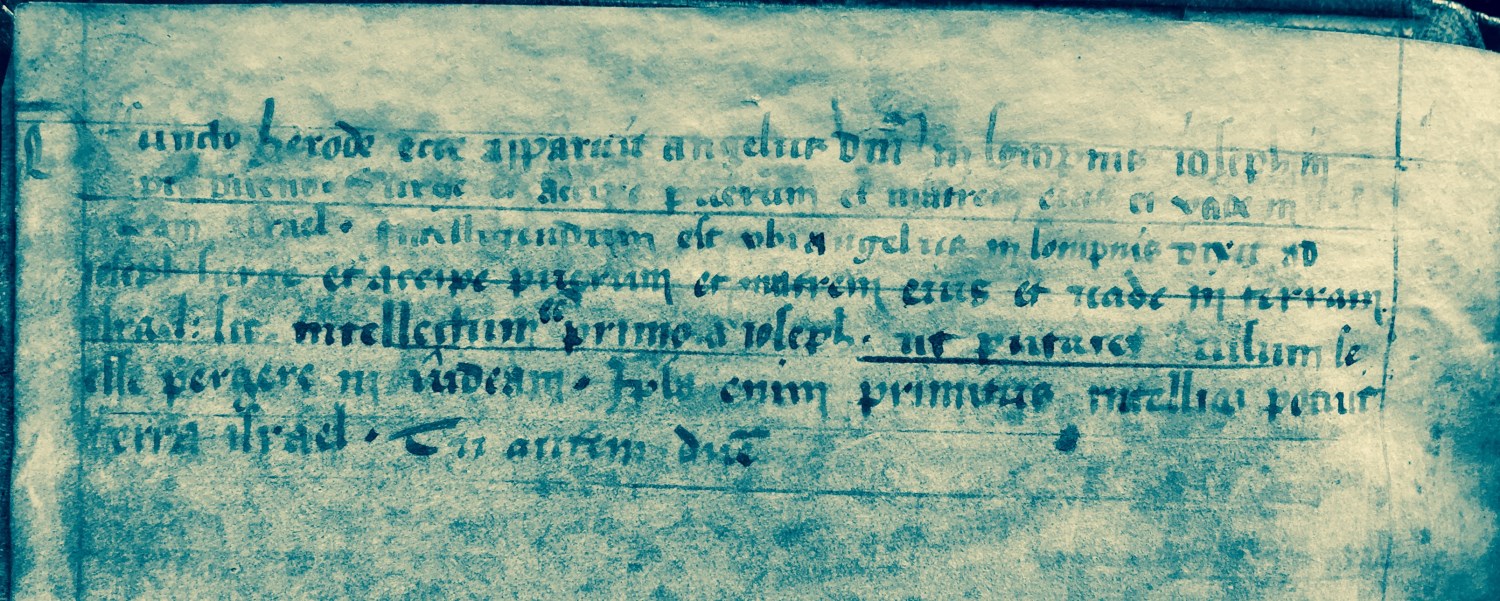 functo herode ecce apparuit angelus dni in sompnis ioseph in
dicens. Surge et accipe puerum et matrem eius et vade in
israel. intelligendum est ubi angelus in sompnis dixit ad
ioseph surge et accipe puerum et matrem eius et uade in terram
israel: sic intellectum ee primo a ioseph. ut putaret iussum se
esse pergere in iudeam. Ipsa enim primitus intelligi potuit
terra israel. Tu autem dne